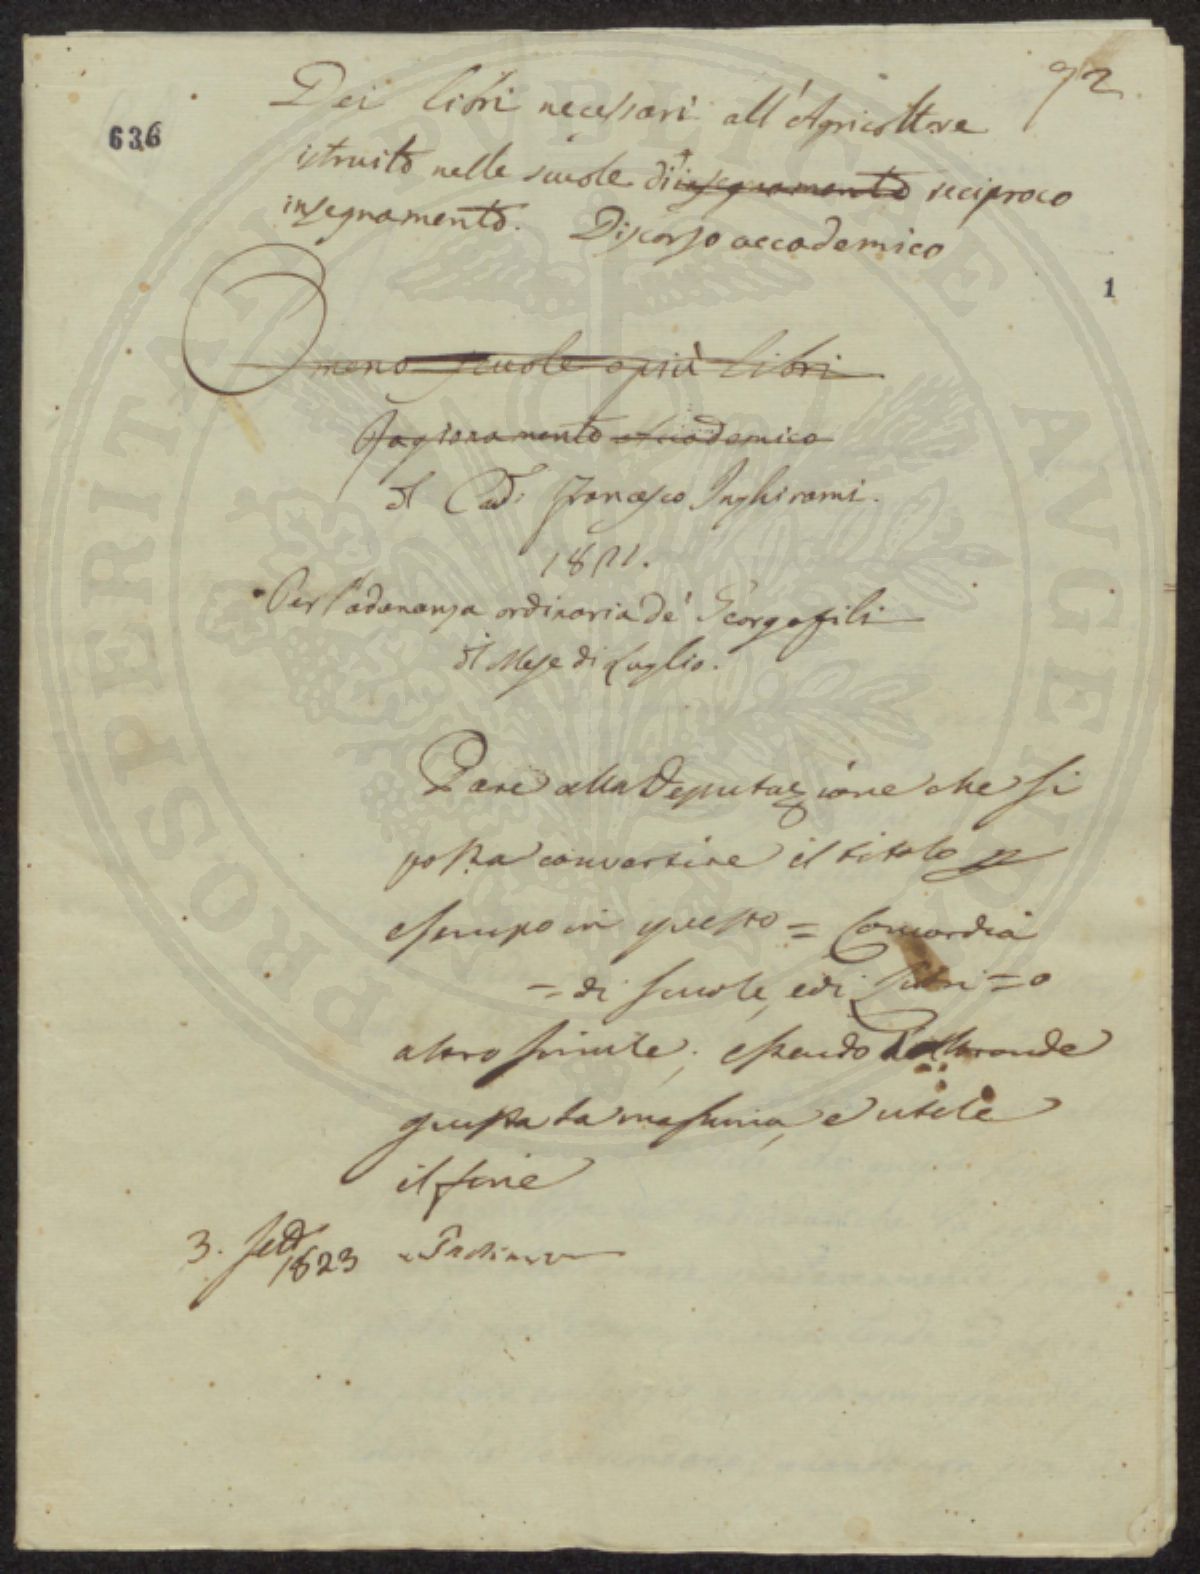 92
636
Dei libri necessari all'Agricoltore
istruito nelle scuole di insegnamento reciproco
insegnamento. Discorso accademico
1
O meno scuole o più libri
Ragionamento accademico
Del Cav. Francesco Inghirami.
1821.
Per l'adananza ordinaria de' Georgofili
del Mese di Luglio.
Pare alla Deputazione che si
possa convertire il titolo p
esempio in questo = Concordia
= di scuole, e di libri = o
altro simile; essendo d'altronde
giusta la massima, e utile
il fine
3. Sett.
1823
PROSPERITATI PUBLICAE AUGENDAE